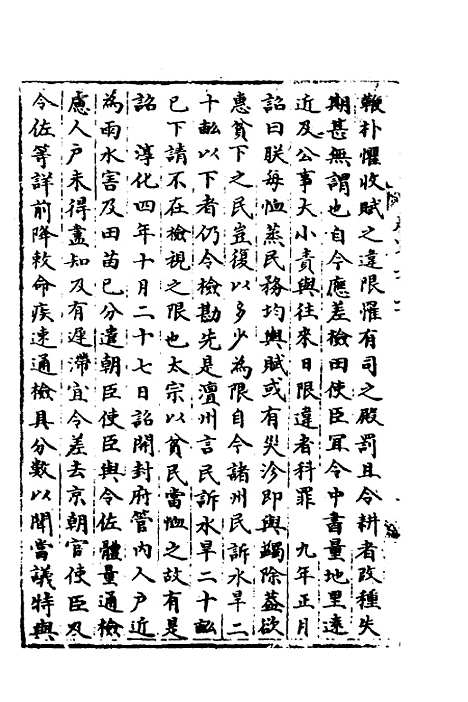 鞭朴懼收賦之違限懼有司之殿罰且令耕者改種失
期甚無謂也自今應差檢田使臣冝令中書量地里遠
近及公事大小責與往來日限違者科罪　九年正月
詔曰朕每恤蒸民務均輿賦或有災沴即與蠲除葢欲
惠貧下之民豈復以多少為限自今諸州民訴水旱二
十畝以下者仍令檢勘先是澶州言民訴水旱二十畝
已下請不在檢視之限也太宗以貧民當恤之故有是
詔　淳化四年十月二十七日詔開封府管內人戶近
為雨水害及田苗已分遣朝臣使臣與令佐體量通檢
慮人戶未得盡知及有遲滯宜令差去京朝官使臣及
令佐等詳前降敕命疾速通檢具分數以聞當議特與